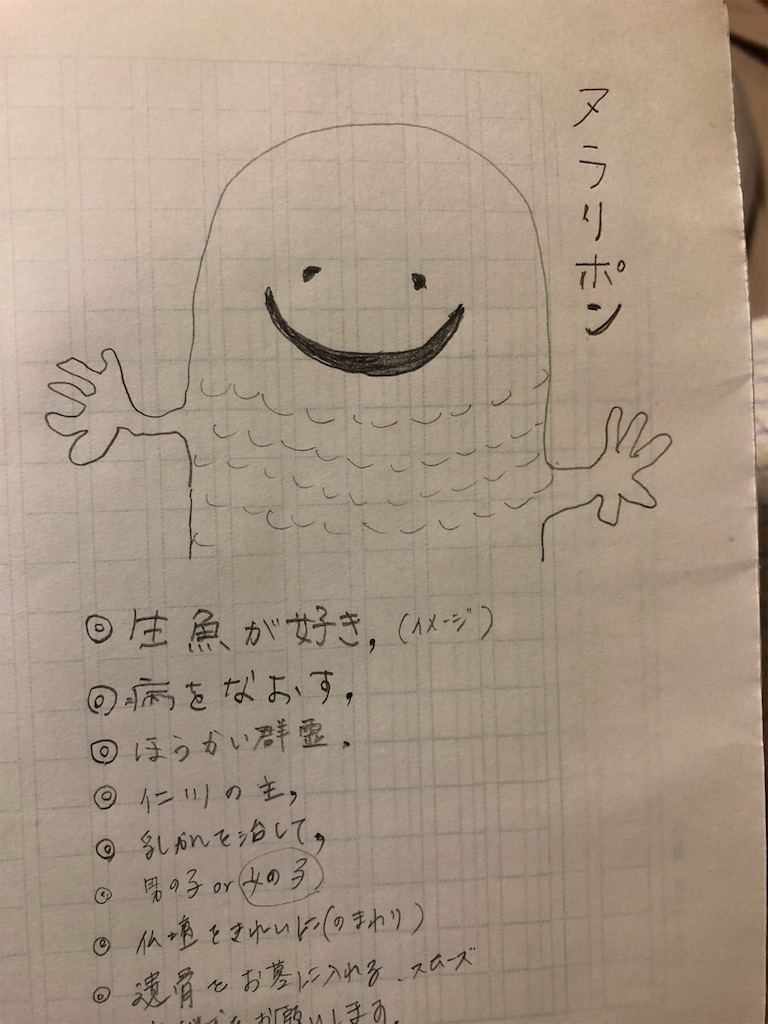 ヌラリポン
◎生魚が好き,(イメージ)
◎病をなおす,
◎ほうかい群霊.
◎仁川の主,
◎乳がんを治して,
◎男の子or女の子
◎仏壇をきれいに(のまわり)
◎遺骨をお墓に入れる.スムーズ
をお願いします.